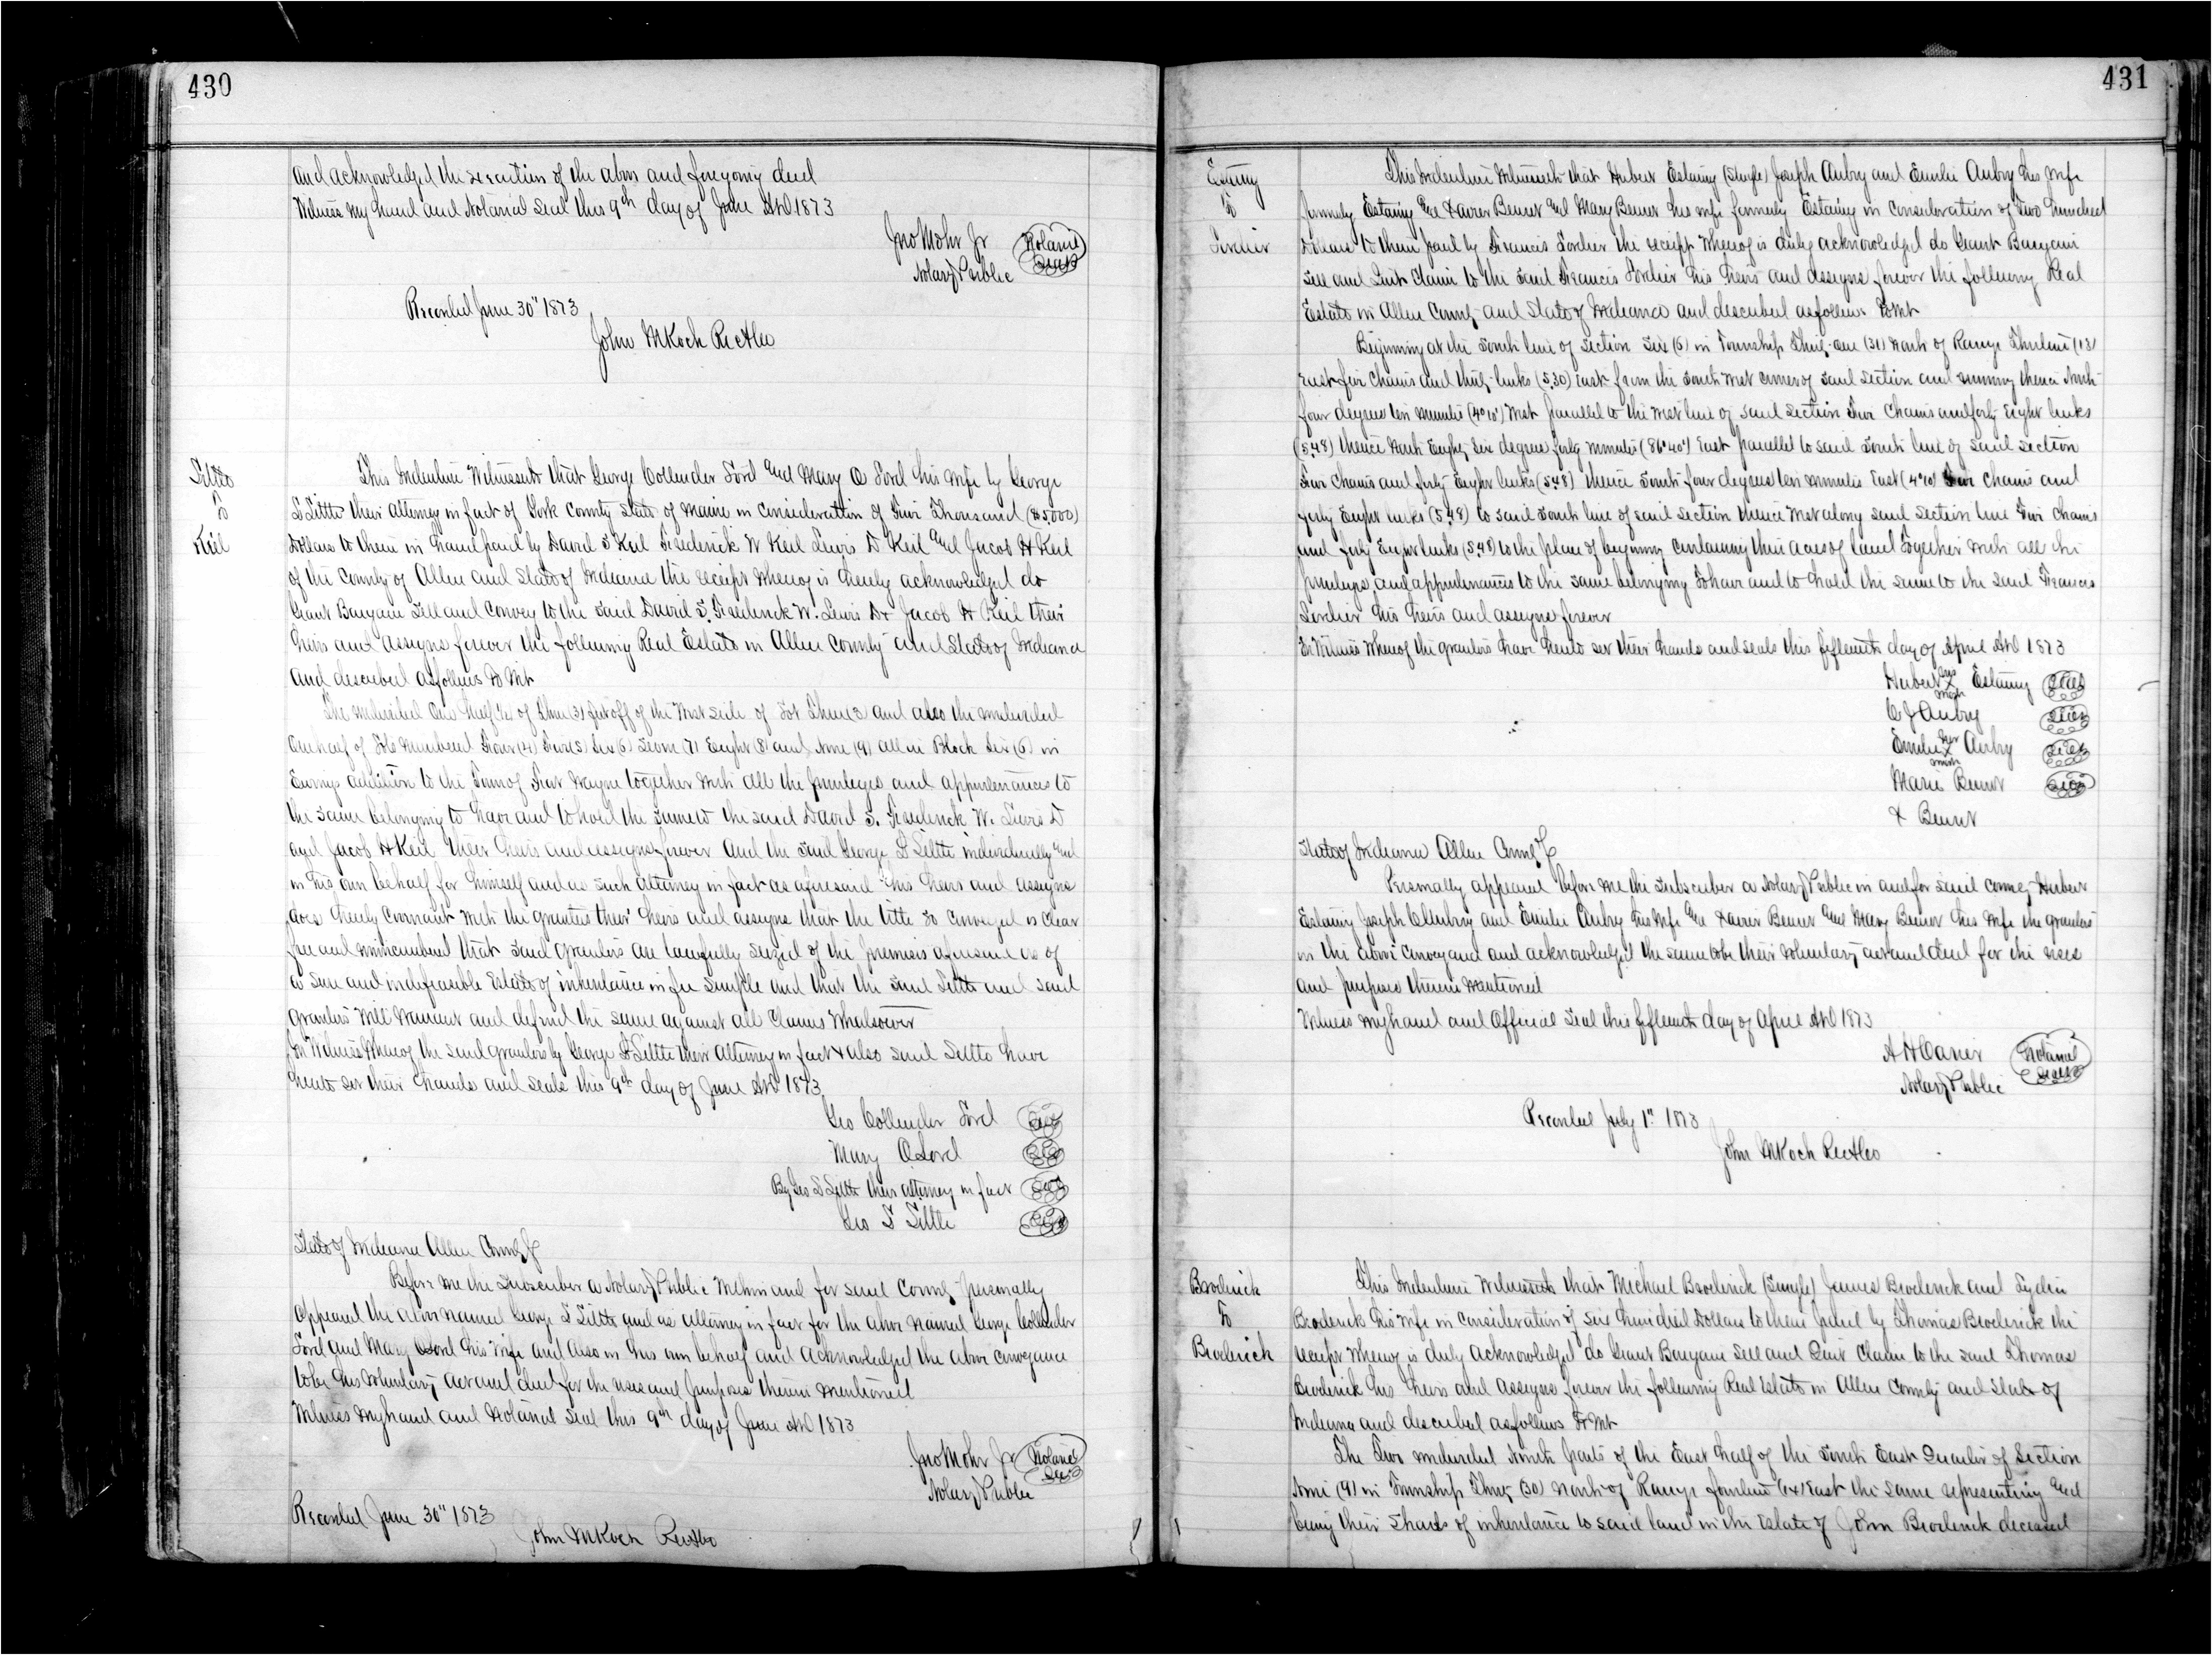 430
and acknowledged the execution of the above and foregoing deed
Witness my hand and Notarial Seal this 9th day of June AD 1873
Jno Mohr Jr
Notary Public
Notarial
Seal
Recorded June 30" 1873
John M Koch
to
Keil
This Indenture Witnesseth that George Collender Ford and Mary O Ford his wife by George
their attorney in fact of York County State of Maine in consideration of Five Thousand ($5,000)
Dollars to them in hand paid by David S Keil Frederick W Keil Lewis D Keil and Jacob H Keil
of the County of Allen and State of Indiana the receipt whereof is hereby acknowledged do
Grant Bargain Sell and Convey to the said David S. Frederick W. Lewis D & Jacob H Keil their
heirs and assigns forever the following Real Estate in Allen County and State of Indiana
and described as follows To Wit
The undivided One half ½ of cut off of the West side of Lot Three 3 and also the undivided
One half of Lots Numbered Four (4) Five (5) Six (6) Seven (7) Eight (8) and Nine (9) all in Block Six (6) in
Ewings addition to the Town of Fort Wayne together with all the privileges and appurtenances to
the same belonging to have and to hold the same to the said David S. Frederick W. Lewis D
and Jacob H Keil their heirs and assigns forever and the said George individually and
in his own behalf for himself and as such attorney in fact as aforesaid his heirs and assigns
does hereby covenant with the grantees their heirs and assigns that the title so conveyed is clear
free and unincumbered that said grantors are lawfully seized of the premises aforesaid as of
a sure and indefeasible Estate of inheritance in fee simple and that the said and said
grantors will Warrant and defend the same against all claims whatsoever
In Witness Whereof the said grantors by George their attorney in fact & also said have
hereto set their hands and seals this 9th day of June AD 1873
Geo Collender Ford Seal
Mary O Ford Seal
By Geo their attorney in fact Seal
Geo Seal
State of Indiana Allen County
Before me the Subscriber a Notary Public within and for said County personally
appeared the above named George and as attorney in fact for the above named George Collender
Ford and Mary O Ford his wife and also in his own behalf and acknowledged the above conveyance
to be his voluntary act and deed for the uses and purposes therein mentioned
Witness my hand and Notarial Seal this 9th day of June AD 1873
Jno Mohr Jr
Notary Public
Notarial
Seal
Recorded June 30" 1873
John M Koch
431
to
This Indenture Witnesseth that Hubert (Single) Joseph Aubry and Emilie Aubry his wife
formerly and Xavier and Mary his wife formerly in consideration of Two hundred
Dollars to them paid by Francis the receipt whereof is duly acknowledged do Grant Bargain
Sell and Quit Claim to the said Francis his heirs and assigns forever the following Real
Estate in Allen County and State of Indiana and described as follows To Wit
Beginning at the South line of Section Six (6) in Township Thirty-one (31) North of Range Thirteen (13)
East five chains and thirty links (5.30) East from the South West corner of said Section and running thence North
four degrees ten minutes (4° 10') West parallel to the West line of said Section Five Chains and forty Eight links
(5.48) thence North Eighty Six degrees forty minutes (86° 40') East parallel to said South line of said Section
Five Chains and forty Eight links (5.48) thence South four degrees ten minutes East (4° 10') Five Chains and
forty Eight links (5.48) to said South line of said Section thence West along said Section line Five Chains
and forty Eight links (5.48) to the place of beginning containing three Acres of land Together with all the
privileges and appurtenances to the same belonging To have and to hold the same to the said Francis
his heirs and assigns forever
In Witness Whereof the grantors have hereto set their hands and seals this fifteenth day of April AD 1873
Hubert his X mark Seal
Aubry Seal
Emilie her X mark Aubry Seal
Marie Seal
X
State of Indiana Allen County
Personally appeared before me the Subscriber a Notary Public in and for said County Hubert
Joseph Aubry and Emilie Aubry his wife and Xavier and Mary his wife the grantors
in the above conveyance and acknowledged the same to be their voluntary act and deed for the uses
and purposes therein mentioned
Witness my hand and Official Seal this fifteenth day of April AD 1873
Notary Public
Notarial
Seal
Recorded July 1" 1873
John M Koch
Broderick
to
Broderick
This Indenture Witnesseth that Michael Broderick (Single) James Broderick and
Broderick his wife in consideration of Six hundred Dollars to them paid by Thomas Broderick the
receipt whereof is duly acknowledged do Grant Bargain Sell and Quit Claim to the said Thomas
Broderick his heirs and assigns forever the following Real Estate in Allen County and State of
Indiana and described as follows To Wit
The Two undivided ninth parts of the East half of the South East Quarter of Section
Nine (9) in Township Thirty (30) North of Range fourteen (14) East the same representing and
being their Shares of inheritance to said land in the Estate of John Broderick deceased